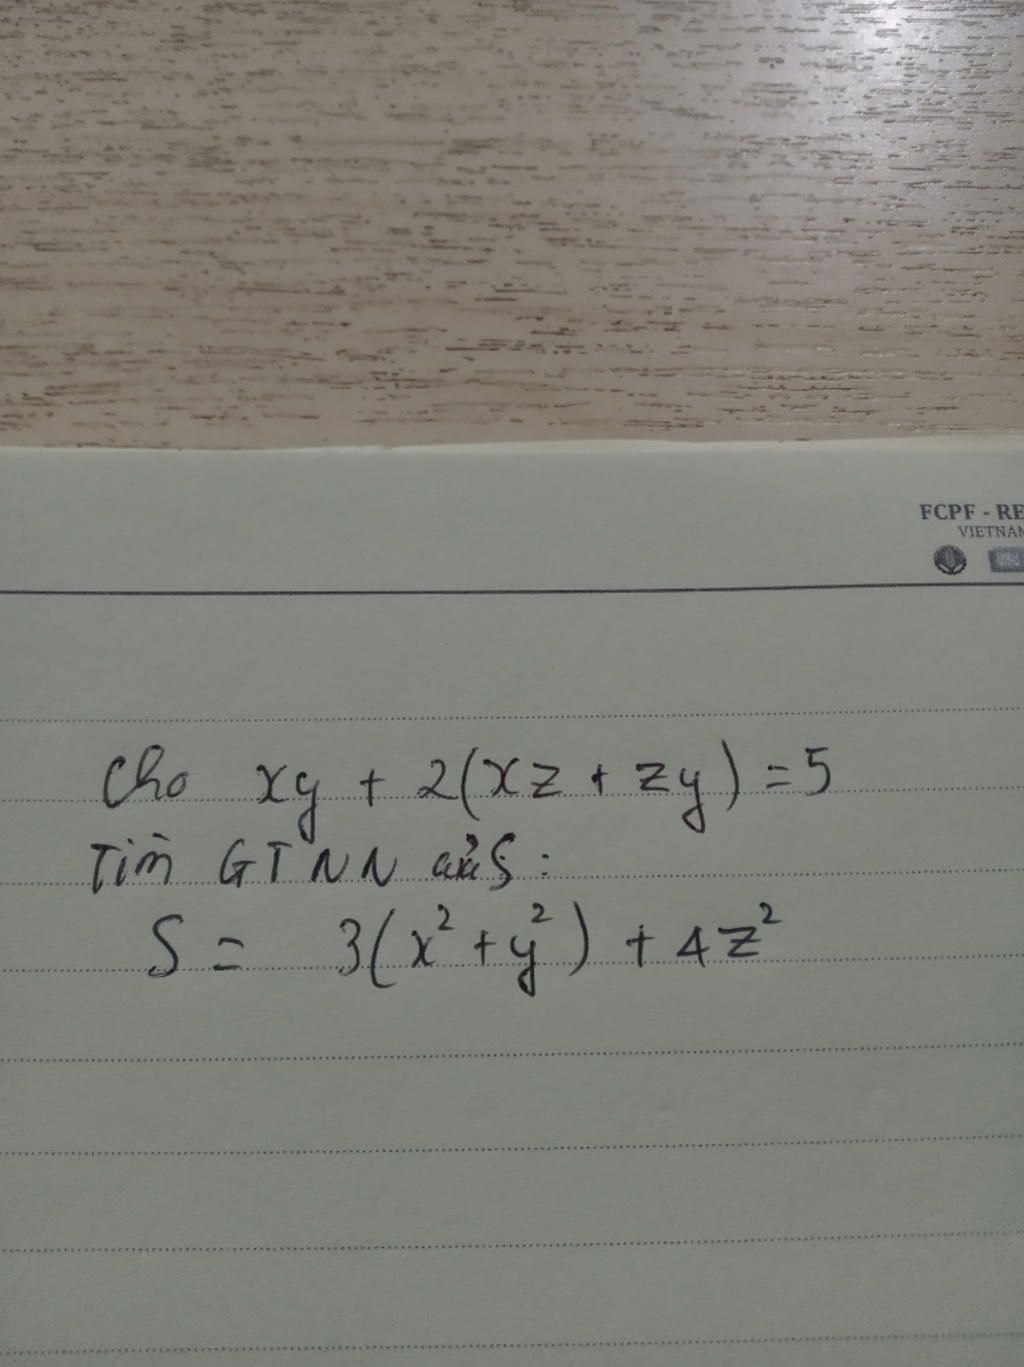 FCPF - RE
VIETNAM
Cho xy + 2(xz + zy) = 5
Tìm GTNN của S :
S = 3(x² + y²) + 4z²